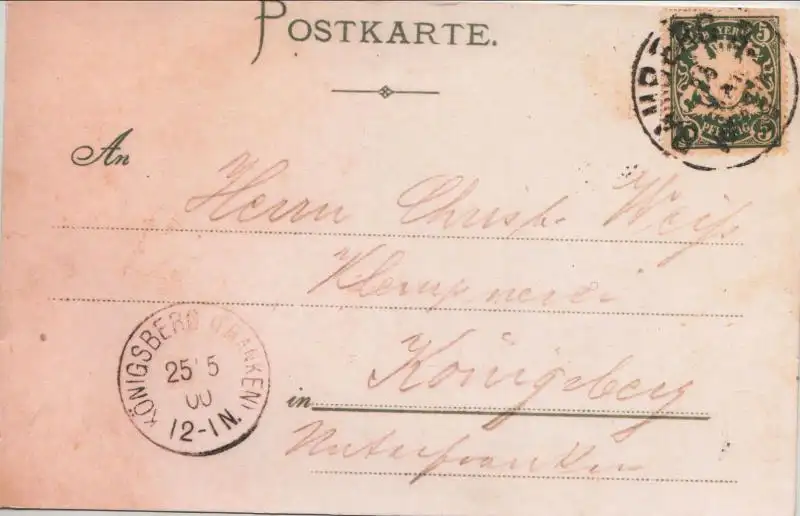 POSTKARTE.
BAYERN
5 5
5 PFENNIG 5
An
Herrn Christ. Weiß
Klempnerei
in Königsberg
Unterfranken
KÖNIGSBERG (FRANKEN)
25 5
00
12-1 N.